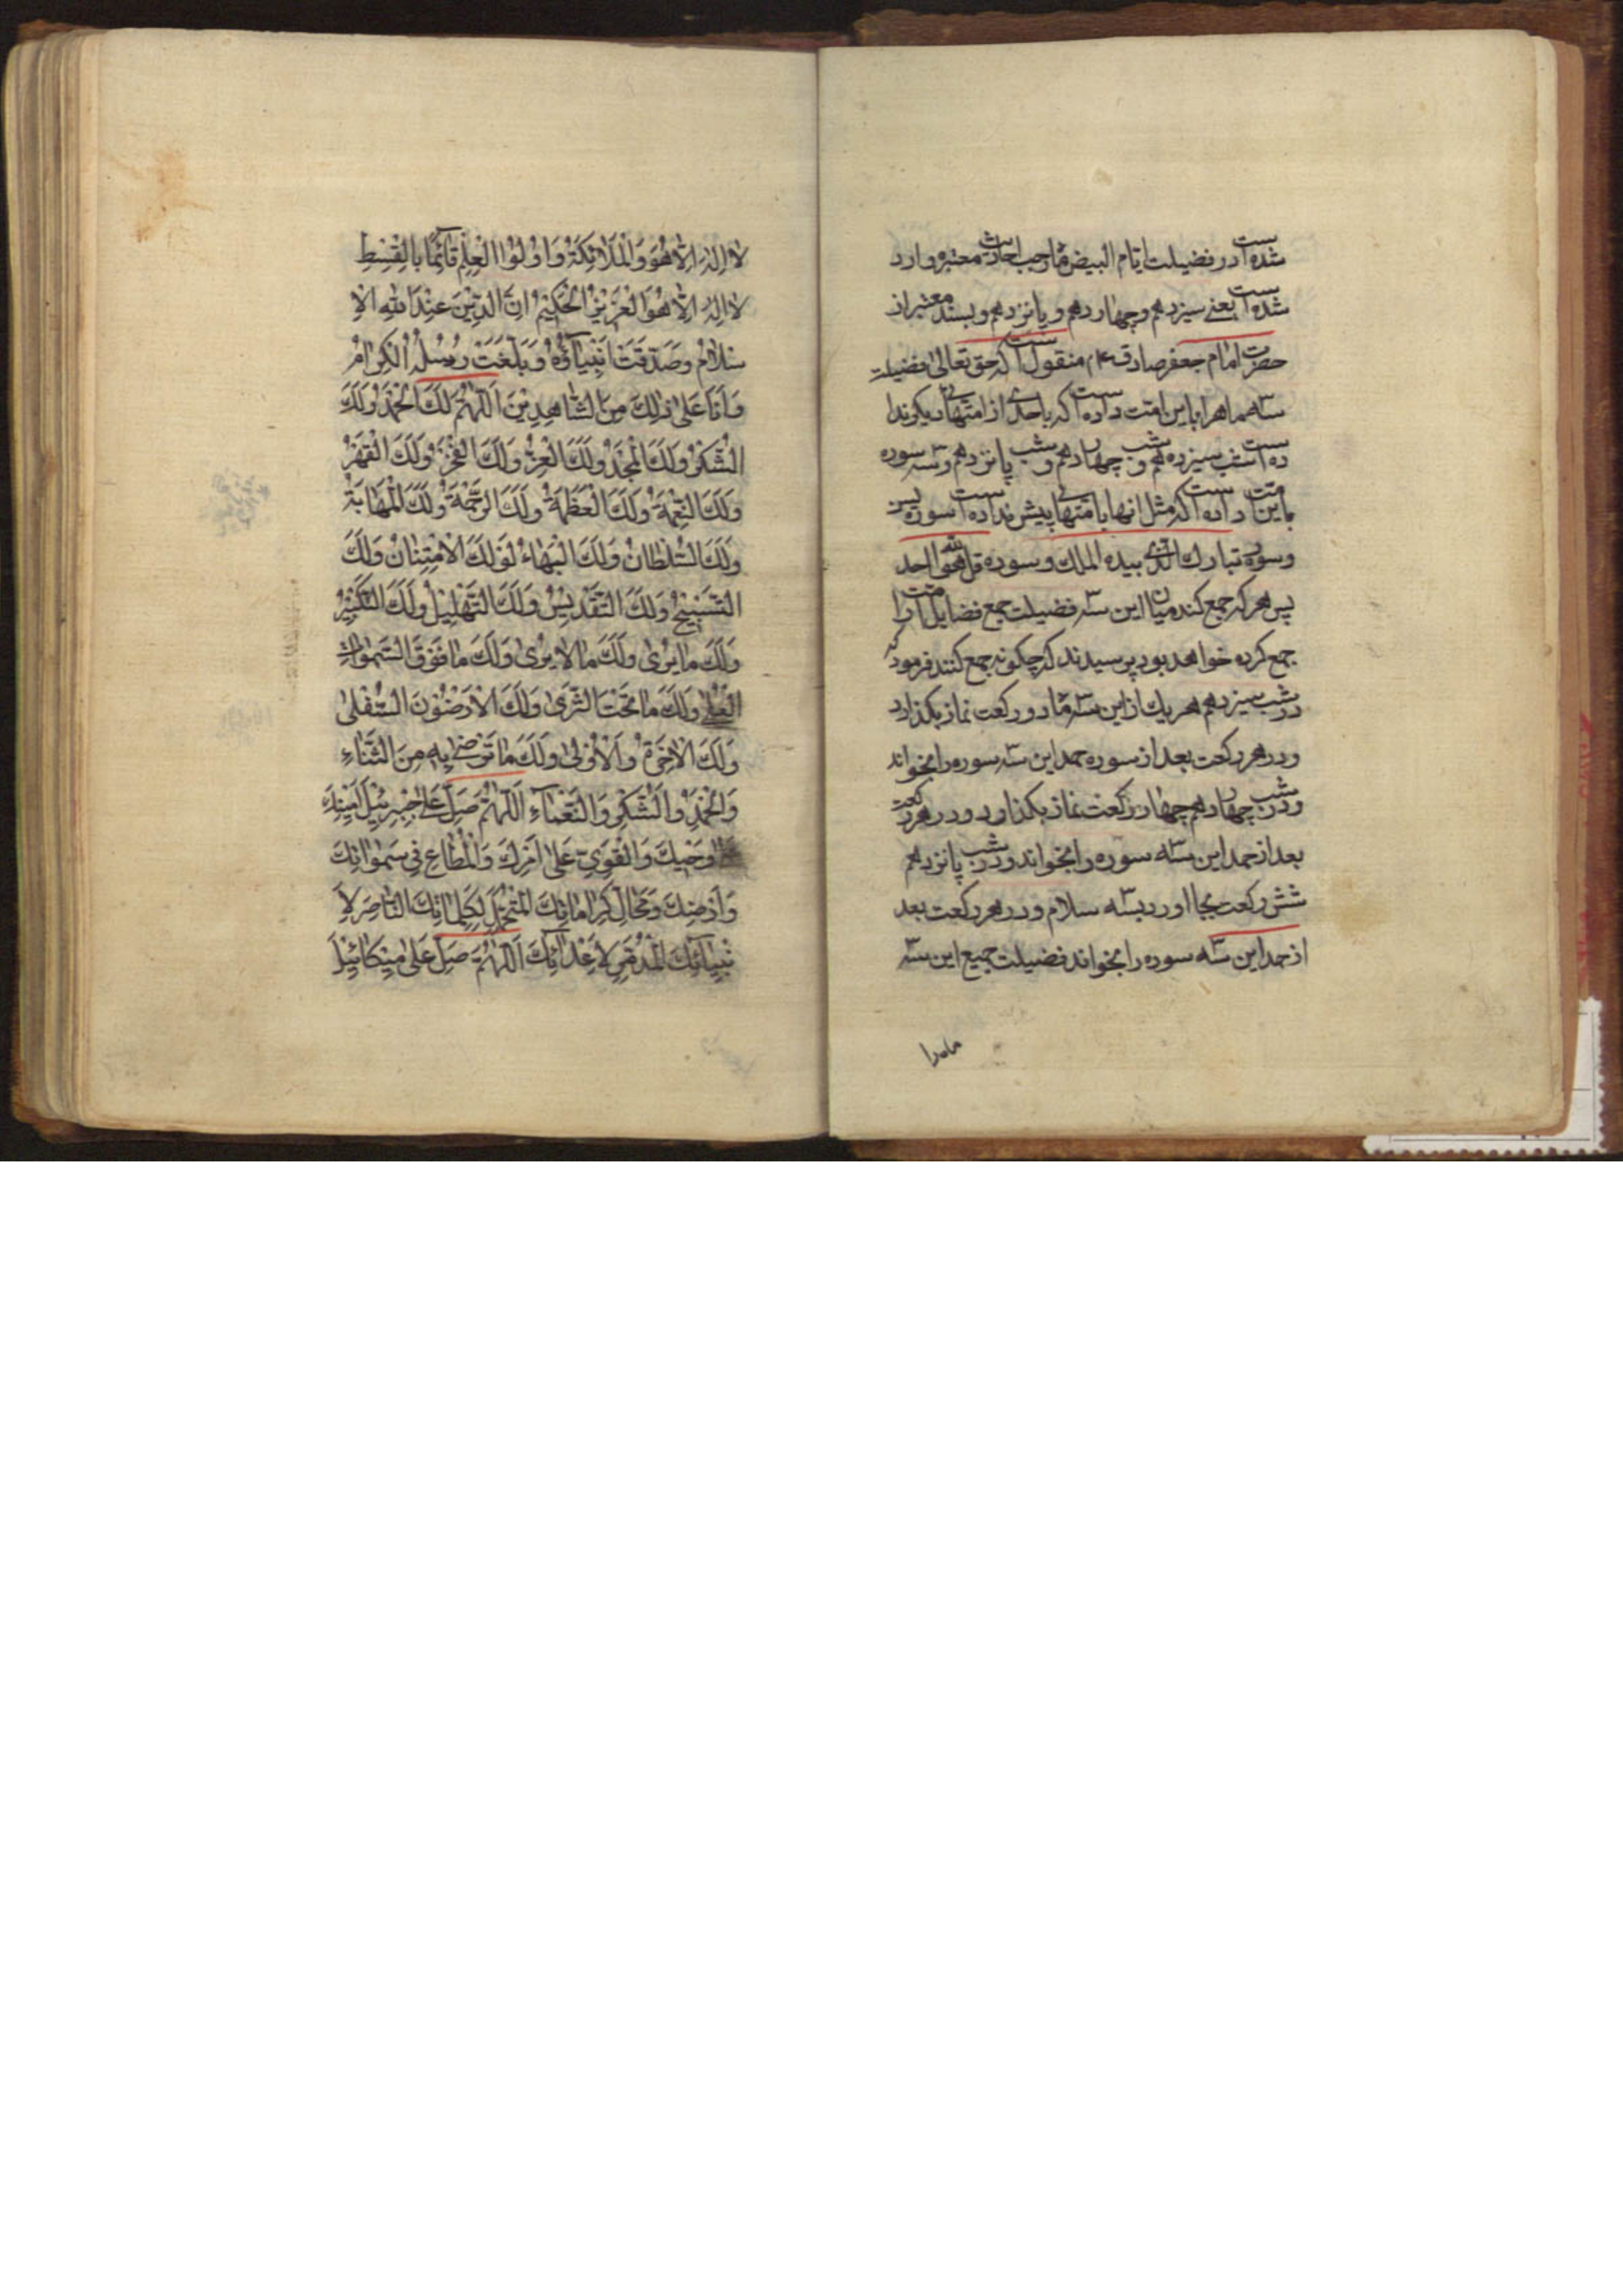 شده است در فضیلت ایام البیض ماه رجب احادیث معتبره وارد
شده است یعنے سیزدهم و چهاردهم و پانزدهم و بسند معتبر از
حضرت امام جعفر صادق ع م منقول است که حق تعالی فضیلت
سه ماه را باین امت داده است که باحدی از امتهای دیگر ندا
ده است شب سیزدهم و شب چهاردهم و شب پانزدهم و سه سوره
باین امت داده است که مثل انها بامتهای پیش نداده است سوره یس
و سوره تبارك الذی بیده الملك و سوره قل هو الله احد
پس هر که جمع کند میان این سه فضیلت جمع فضایل امت را
جمع کرده خواهد بود پرسیدند که چکونه جمع کنند فرمود که
در شب سیزدهم هر یك از این سه ماه دو رکعت نماز بکذارد
و در هر رکعت بعد از سوره حمد این سه سوره را بخواند
و در شب چهاردهم چهار رکعت نماز بکذارد و در هر رکعت
بعد از حمد این سه سوره را بخواند و در شب پانزدهم
شش رکعت بجا اورد بسه سلام و در هر رکعت بعد
از حمد این سه سوره را بخواند فضیلت جمیع این سه
ماه را
لَا اِلٰهَ اِلَّا هُوَ وَالْمَلَائِكَةُ وَاُولُوا الْعِلْمِ قَآئِمًا بِالْقِسْطِ
لَا اِلٰهَ اِلَّا هُوَ الْعَزِيزُ الْحَكِيمُ اِنَّ الدِّيْنَ عِنْدَ اللهِ الْاِ
سْلَامُ وَصَدَّقَتْ اَنْبِيَآؤُهُ وَبَلَّغَتْ رُسُلُهُ الْكِرَامُ
وَاَنَا عَلٰى ذٰلِكَ مِنَ الشَّاهِدِيْنَ اَللّٰهُمَّ لَكَ الْحَمْدُ وَلَكَ
الشُّكْرُ وَلَكَ الْمَجْدُ وَلَكَ الْعِزُّ وَلَكَ الْفَخْرُ وَلَكَ الْقَهْرُ
وَلَكَ النِّعْمَةُ وَلَكَ الْعَظَمَةُ وَلَكَ الرَّحْمَةُ وَلَكَ الْمَهَابَةُ
وَلَكَ السُّلْطَانُ وَلَكَ الْبَهَاءُ وَلَكَ الْاِمْتِنَانُ وَلَكَ
التَّسْبِيْحُ وَلَكَ التَّقْدِيْسُ وَلَكَ التَّهْلِيْلُ وَلَكَ التَّكْبِيْرُ
وَلَكَ مَا يُرٰى وَلَكَ مَا لَا يُرٰى وَلَكَ مَا فَوْقَ السَّمٰوَاتِ
الْعُلٰى وَلَكَ مَا تَحْتَ الثَّرٰى وَلَكَ الْاَرَضُوْنَ السُّفْلٰى
وَلَكَ الْاٰخِرَةُ وَالْاُوْلٰى وَلَكَ مَا تَرْضٰى بِهِ مِنَ الثَّنَاءِ
وَالْحَمْدِ وَالشُّكْرِ وَالنَّعْمَآءِ اَللّٰهُمَّ صَلِّ عَلٰى جَبْرَئِيْلَ اَمِيْنِكَ
وَحْيِكَ وَالْقَوِيِّ عَلٰى اَمْرِكَ وَالْمُطَاعِ فِي سَمٰوَاتِكَ
وَاَرْضِكَ وَمَحَالِّ كَرَامَاتِكَ الْمُتَحَمِّلِ لِكَلِمَاتِكَ النَّاصِرِ لِاَ
نْبِيَآئِكَ الْمُدَمِّرِ لِاَعْدَآئِكَ اَللّٰهُمَّ صَلِّ عَلٰى مِيْكَائِيْلَ